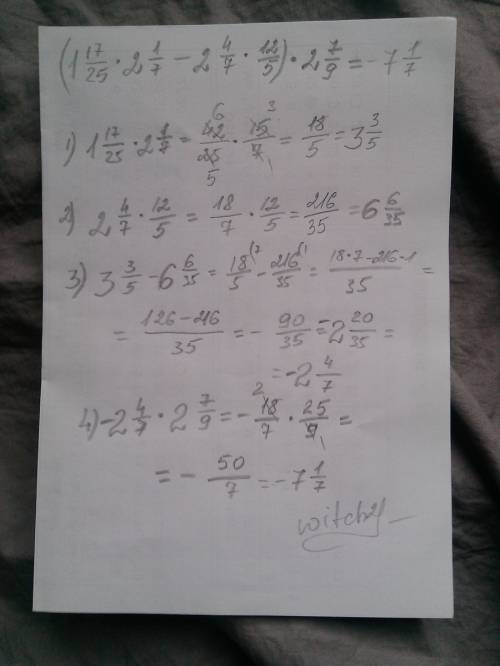 (1 17/25 · 2 1/7 − 2 4/7 · 12/5) · 2 7/9 = −7 1/7
1) 1 17/25 · 2 1/7 = 42/25 · 15/7 = 18/5 = 3 3/5
2) 2 4/7 · 12/5 = 18/7 · 12/5 = 216/35 = 6 6/35
3) 3 3/5 − 6 6/35 = 18/5 − 216/35 = (18·7−216·1)/35 =
= (126−216)/35 = − 90/35 = −2 20/35 =
= −2 4/7
4) −2 4/7 · 2 7/9 = − 18/7 · 25/9 =
= − 50/7 = −7 1/7